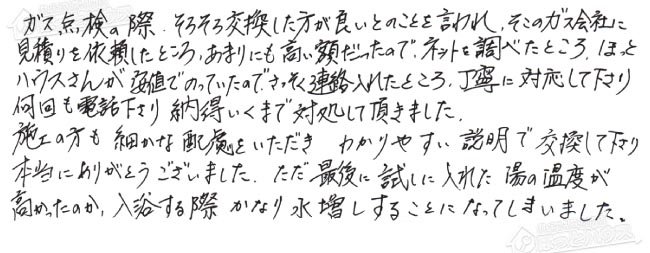 ガス点検の際、そろそろ交換した方が良いとのことを言われ、そこのガス会社に
見積りを依頼したところ、あまりにも高い額だったので、ネットを調べたところ、ほっと
ハウスさんが安値でのっていたので、さっそく連絡入れたところ、丁寧に対応して下さり
何回も電話下さり納得いくまで対処して頂きました。
施工の方も細かな配慮をいただき わかりやすい説明で交換して下さり
本当にありがとうございました。ただ最後に試しに入れた湯の温度が
高かったのか、入浴する際かなり水増しすることになってしまいました。